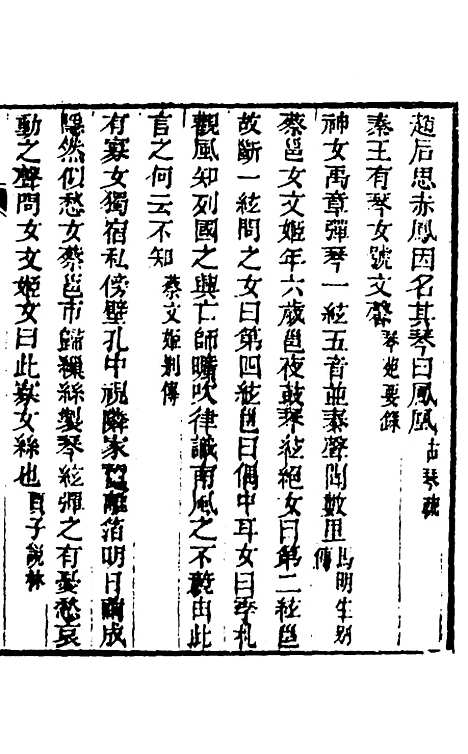 趙后思赤鳳因名其琴曰鳳凰古琴疏
秦王有琴女號文馨琴苑要錄
神女禹章彈琴一絃五音並奏聲聞數里馬明生別傳
蔡邕女文姬年六歲邕夜鼓琴絃絕女曰第二絃邕
故斷一絃問之女曰第四絃邕曰偶中耳女曰季札
觀風知列國之興亡師曠吹律識南風之不競由此
言之何云不知蔡文姬別傳
有寡女獨宿私傍壁孔中視隣家蠶離箔明日繭成
隱然似愁女蔡邕市歸繅絲製琴絃彈之有憂愁哀
動之聲問女文姬女曰此寡女絲也賈子說林